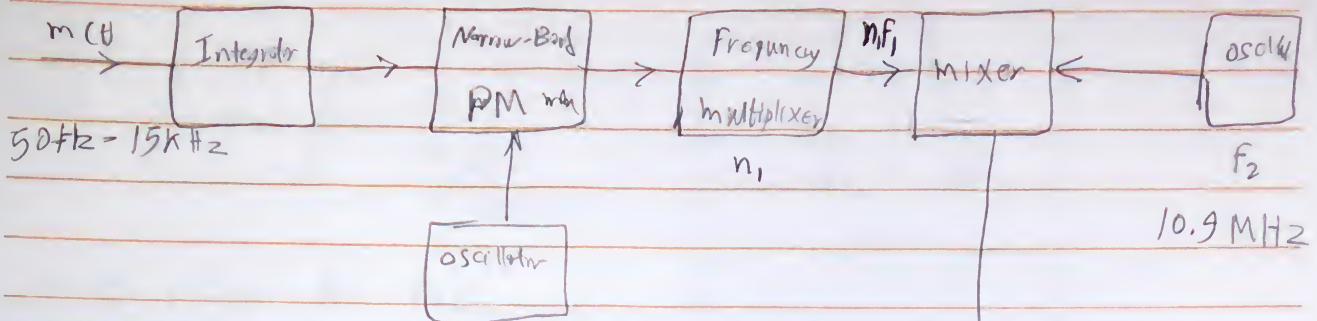 m(t)
Integrator
Narrow-Band
PM
Frequncy
multiplixer
n₁f₁
mixer
oscill
50Hz - 15kHz
n₁
f₂
10.9 MHz
oscillator